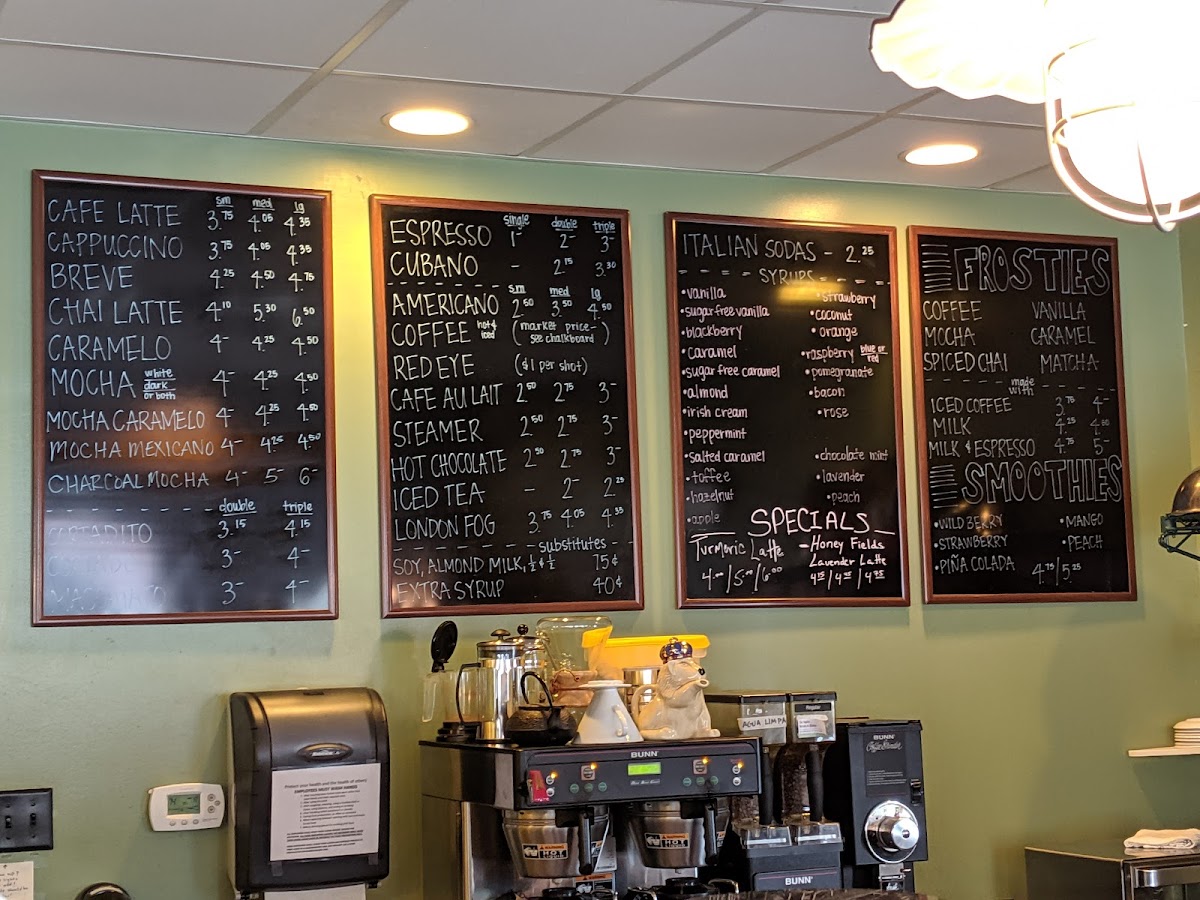 sm med lg
CAFE LATTE 3.75 4.05 4.35
CAPPUCCINO 3.75 4.05 4.35
BREVE 4.25 4.50 4.75
CHAI LATTE 4.10 5.30 6.50
CARAMELO 4- 4.25 4.50
MOCHA white dark or both 4- 4.25 4.50
MOCHA CARAMELO 4- 4.25 4.50
MOCHA MEXICANO 4- 4.25 4.50
CHARCOAL MOCHA 4- 5- 6-
double triple
CORTADITO 3.15 4.15
3- 4-
3- 4-
single double triple
ESPRESSO 1- 2- 3-
CUBANO - 2.75 3.30
sm med lg
AMERICANO 2.50 3.50 4.50
COFFEE hot & iced (market price- see chalkboard)
RED EYE ($1 per shot)
CAFE AU LAIT 2.50 2.75 3-
STEAMER 2.50 2.75 3-
HOT CHOCOLATE 2.50 2.75 3-
ICED TEA - 2- 2.25
LONDON FOG 3.75 4.05 4.35
substitutes
SOY, ALMOND MILK, ½ & ½ 75¢
EXTRA SYRUP 40¢
ITALIAN SODAS - 2.25
SYRUPS
•vanilla •strawberry
•sugar free vanilla •coconut
•blackberry •orange
•caramel •raspberry blue or red
•sugar free caramel •pomegranate
•almond •bacon
•irish cream •rose
•peppermint
•salted caramel •chocolate mint
•toffee •lavender
•hazelnut •peach
•apple
SPECIALS
Turmeric Latte
4.00/5.00/6.00
-Honey Fields
Lavender Latte
FROSTIES
COFFEE VANILLA
MOCHA CARAMEL
SPICED CHAI MATCHA
made with
ICED COFFEE 3.75 4-
MILK 4.25 4.50
MILK & ESPRESSO 4.75 5-
SMOOTHIES
•WILD BERRY •MANGO
•STRAWBERRY •PEACH
•PIÑA COLADA 4.75/5.25
EMPLOYEES MUST WASH HANDS
BUNN
HOT
HOT
AGUA LIMPA
Regular
BUNN
BUNN